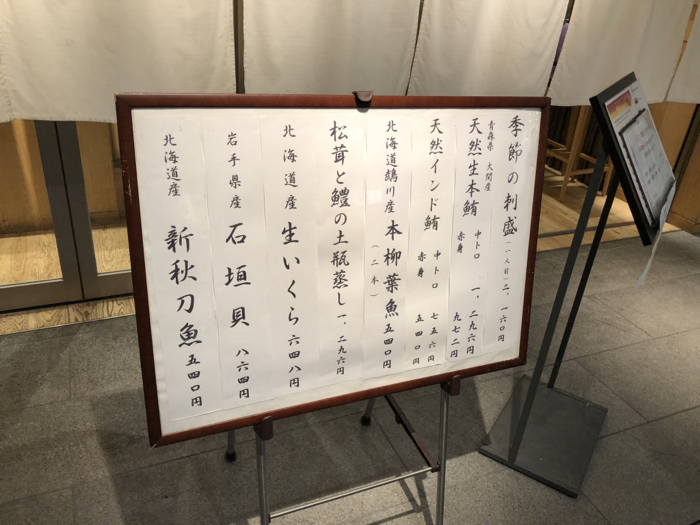 季節の刺盛(一人前)二、一六〇円
青森県 大間産
天然生本鮪 中トロ 一、二九六円
赤身 九七二円
天然インド鮪 中トロ 七五六円
赤身 五四〇円
北海道鵡川産 本柳葉魚(二本)五四〇円
松茸と鱧の土瓶蒸し 一、二九六円
北海道産 生いくら 六四八円
岩手県産 石垣貝 八六四円
北海道産 新秋刀魚 五四〇円